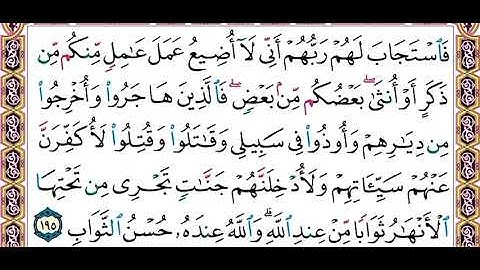 فَٱسْتَجَابَ لَهُمْ رَبُّهُمْ أَنِّى لَآ أُضِيعُ عَمَلَ عَـٰمِلٍ مِّنكُم مِّن
ذَكَرٍ أَوْ أُنثَىٰ ۖ بَعْضُكُم مِّنۢ بَعْضٍ ۖ فَٱلَّذِينَ هَاجَرُوا۟ وَأُخْرِجُوا۟
مِن دِيَـٰرِهِمْ وَأُوذُوا۟ فِى سَبِيلِى وَقَـٰتَلُوا۟ وَقُتِلُوا۟ لَأُكَفِّرَنَّ
عَنْهُمْ سَيِّـَٔاتِهِمْ وَلَأُدْخِلَنَّهُمْ جَنَّـٰتٍ تَجْرِى مِن تَحْتِهَا
ٱلْأَنْهَـٰرُ ثَوَابًا مِّنْ عِندِ ٱللَّهِ ۗ وَٱللَّهُ عِندَهُۥ حُسْنُ ٱلثَّوَابِ ١٩٥